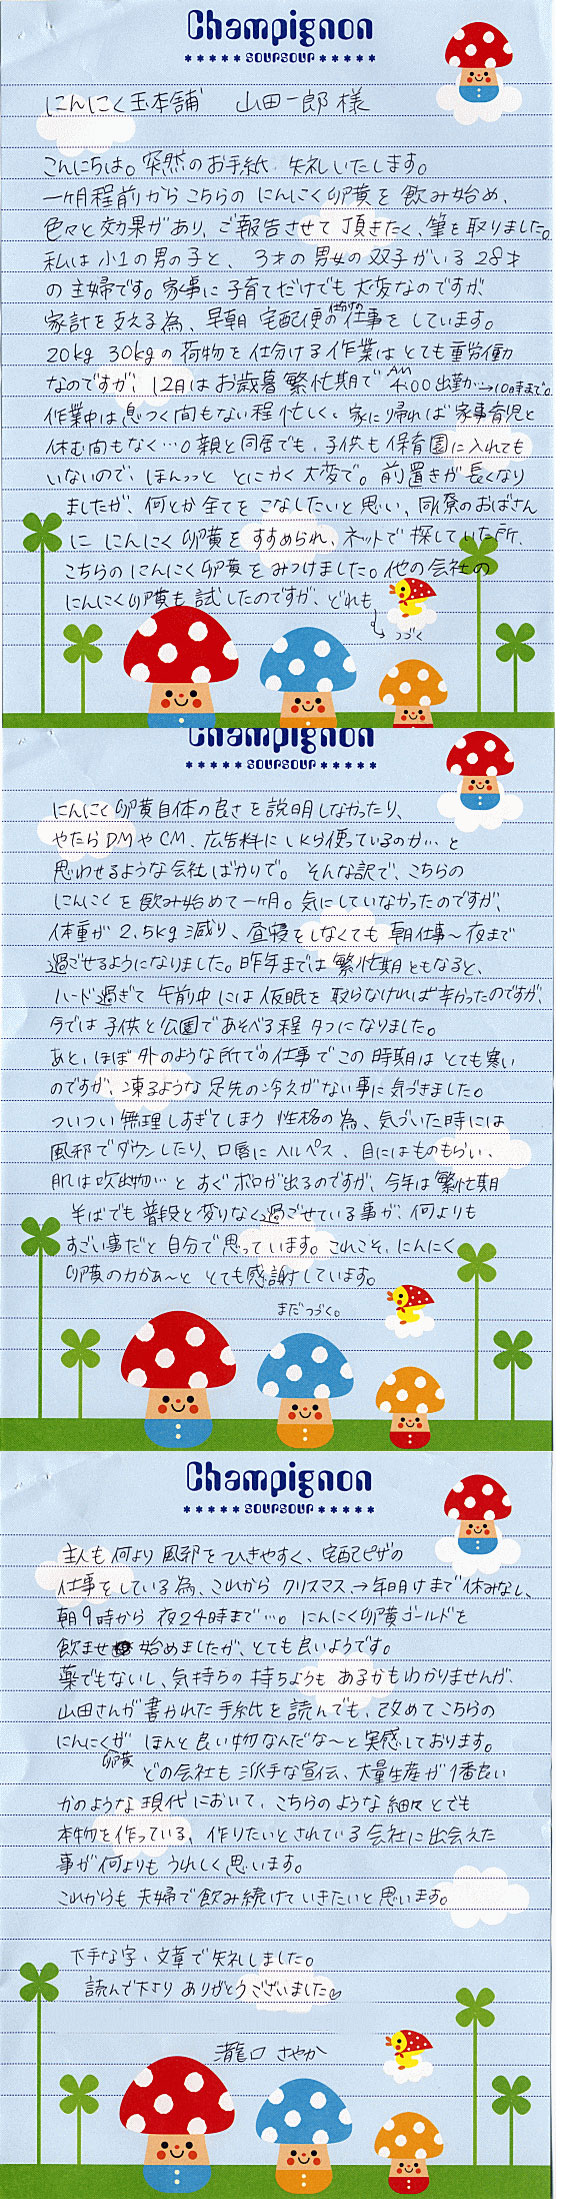 Champignon
★★★★★ SOUPSOUP ★★★★★
にんにく玉本舗　山田一郎様
こんにちは。突然のお手紙 失礼いたします。
一ヶ月程前からこちらのにんにく卵黄を飲み始め、
色々と効果があり、ご報告させて頂きたく、筆を取りました。
私は小1の男の子と、3才の男女の双子がいる28才
の主婦です。家事に子育てだけでも大変なのですが
家計を支える為、早朝 宅配便の仕分けの仕事をしています。
20kg 30kgの荷物を仕分ける作業はとても重労働
なのですが、12月はお歳暮繁忙期でAM4:00出勤…→10時まで。
作業中は息つく間もない程忙しく、家に帰れば家事育児と
休む間もなく…。親と同居でも、子供も保育園に入れても
いないので、ほんっっと とにかく大変で。前置きが長くなり
ましたが、何とか全てをこなしたいと思い、同僚のおばさん
に にんにく卵黄をすすめられ、ネットで探していた所、
こちらのにんにく卵黄をみつけました。他の会社の
にんにく卵黄も試したのですが、どれも
つづく
Champignon
★★★★★ SOUPSOUP ★★★★★
にんにく卵黄自体の良さを説明しなかったり、
やたらDMやCM、広告料にいくら使っているのか…と
思わせるような会社ばかりで。そんな訳で、こちらの
にんにくを飲み始めて一ヶ月。気にしていなかったのですが、
体重が2.5kg減り、昼寝をしなくても朝仕事～夜まで
過ごせるようになりました。昨年までは繁忙期ともなると、
ハード過ぎて午前中には仮眠を取らなければ辛かったのですが、
今では子供と公園であそべる程タフになりました。
あと、ほぼ外のような所での仕事でこの時期はとても寒い
のですが、凍るような足先の冷えがない事に気づきました。
ついつい無理しすぎてしまう性格の為、気づいた時には
風邪でダウンしたり、口唇にヘルペス、目にはものもらい、
肌は吹出物…とすぐボロが出るのですが、今年は繁忙期
半ばでも普段と変りなく過ごせている事が、何よりも
すごい事だと自分で思っています。これこそ、にんにく
卵黄の力かぁ～と とても感謝しています。
まだつづく。
Champignon
★★★★★ SOUPSOUP ★★★★★
主人も何より風邪をひきやすく、宅配ピザの
仕事をしている為、これからクリスマス、→年明けまで休みなし、
朝9時から夜24時まで…。にんにく卵黄ゴールドを
飲ませ始めましたが、とても良いようです。
薬でもないし、気持ちの持ちようもあるかもわかりませんが、
山田さんが書かれた手紙を読んでも、改めてこちらの
にんにく卵黄がほんと良い物なんだな～と実感しております。
どの会社も派手な宣伝、大量生産が1番良い
かのような現代において、こちらのような細々とでも
本物を作っている、作りたいとされている会社に出会えた
事が何よりもうれしく思います。
これからも夫婦で飲み続けていきたいと思います。
下手な字、文章で失礼しました。
読んで下さりありがとうございました♡
瀧口 さやか